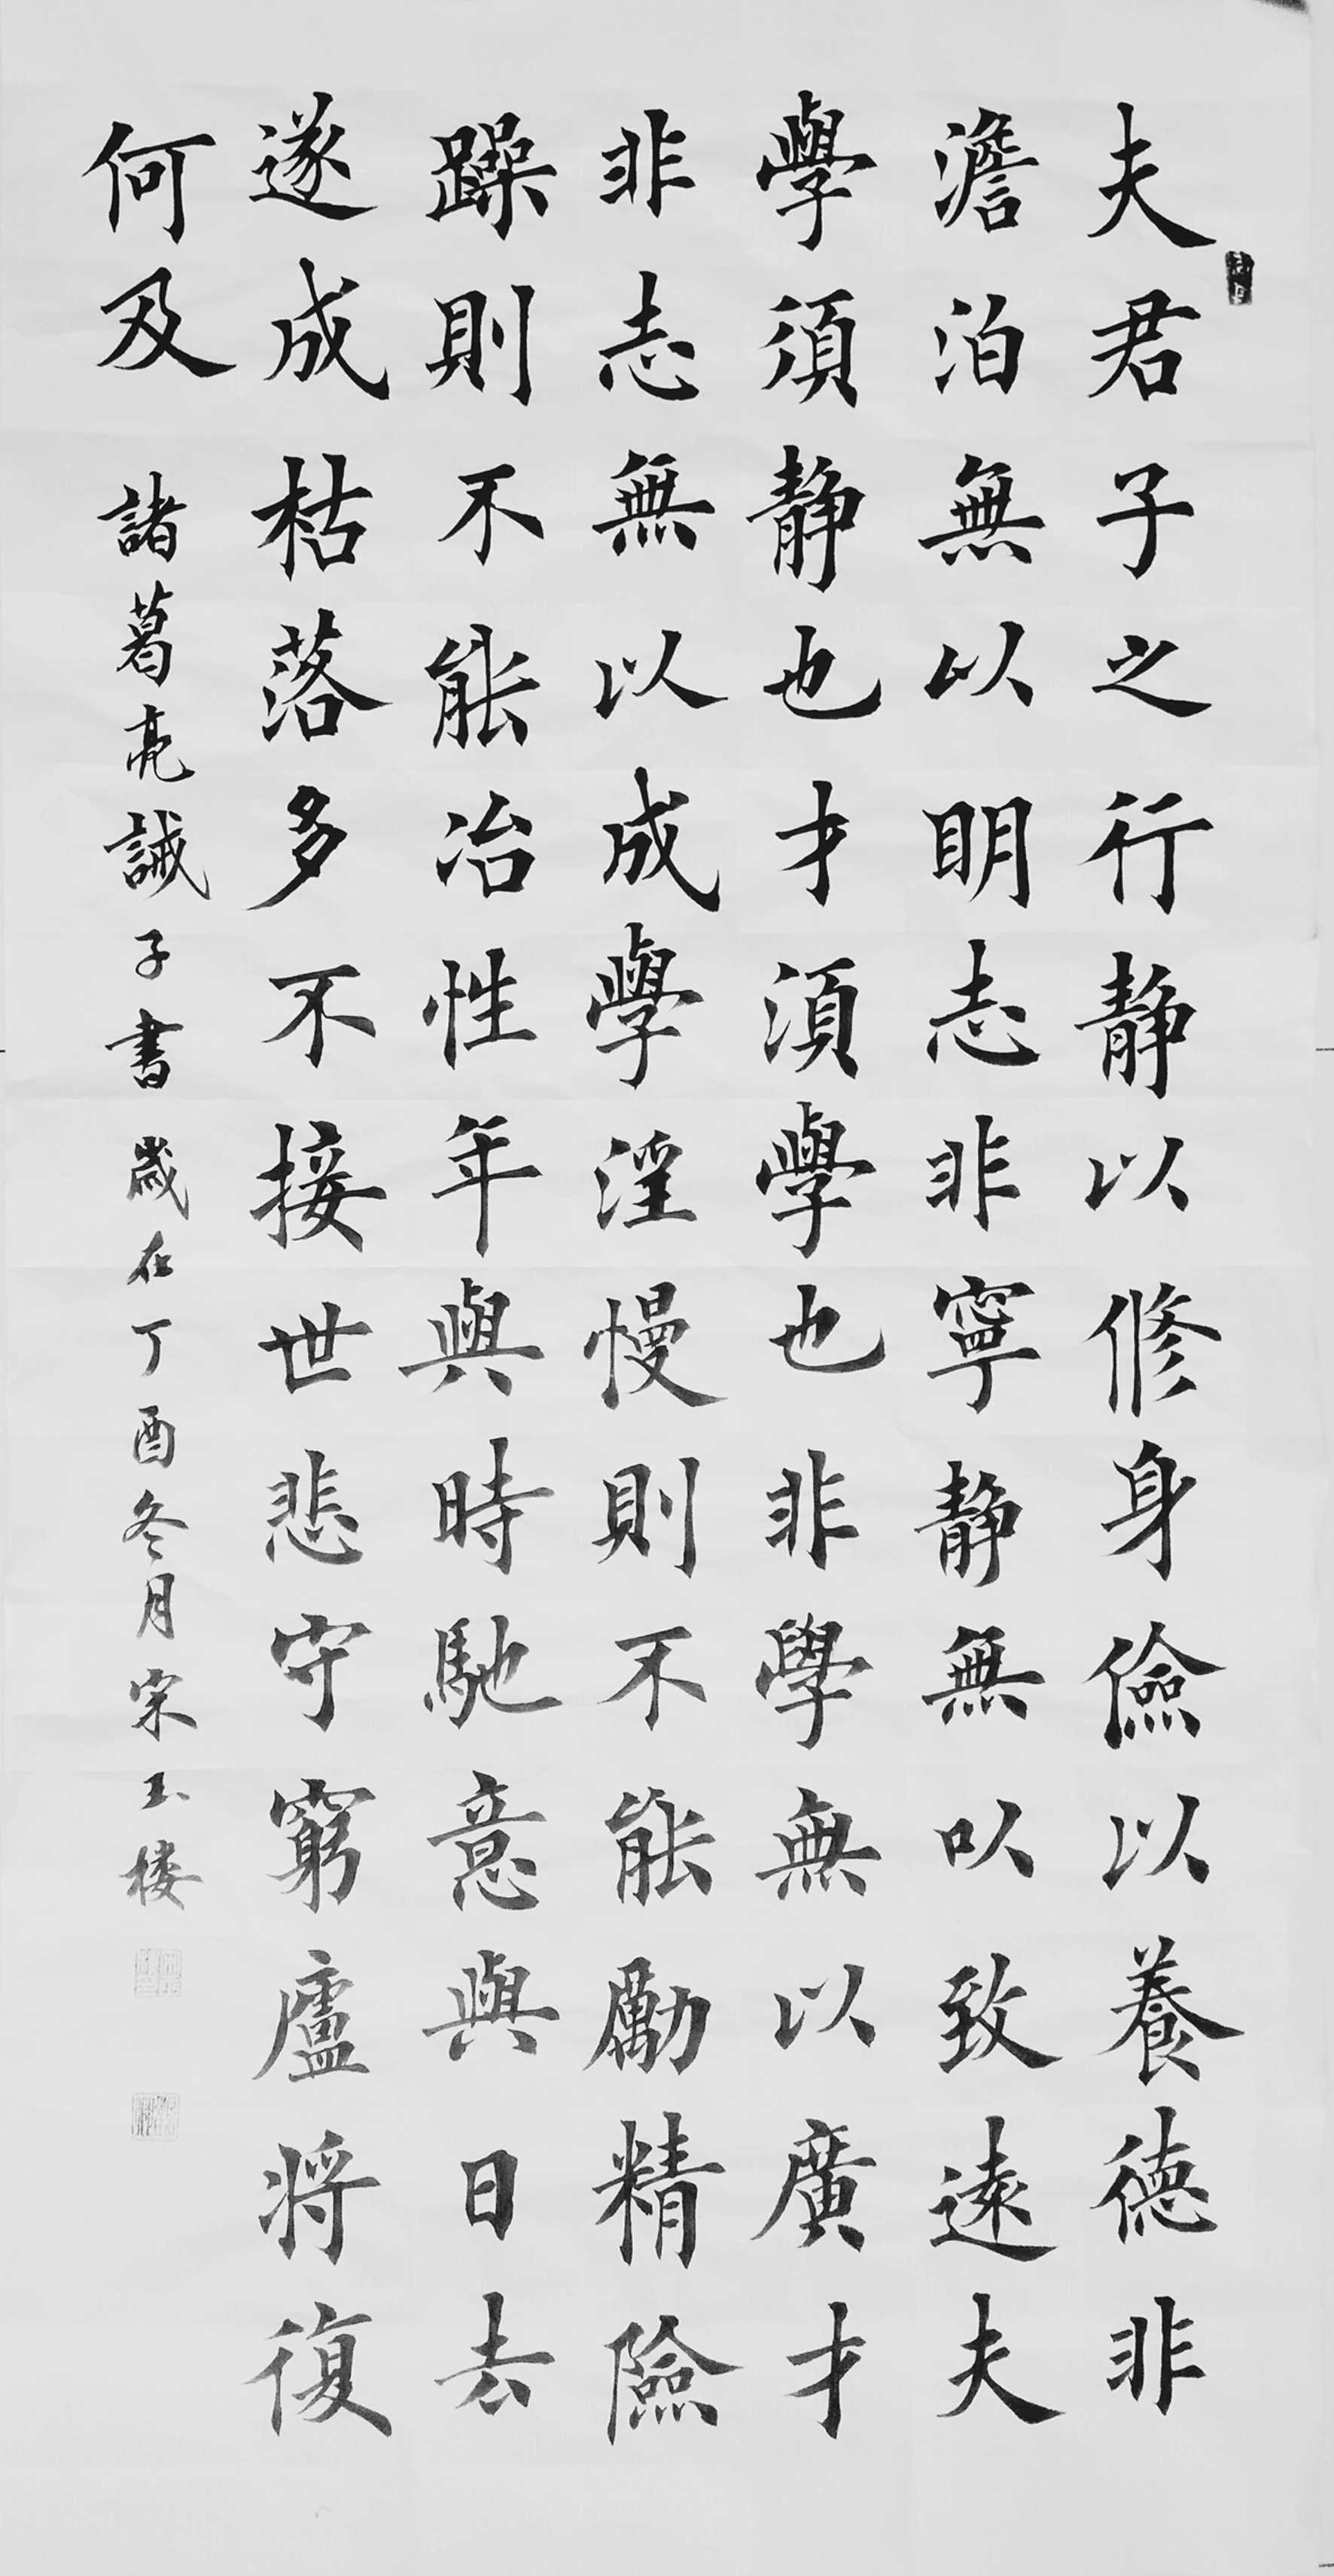 夫君子之行静以修身儉以養德非
澹泊無以明志非寧静無以致遠夫
學須静也才須學也非學無以廣才
非志無以成學淫慢則不能勵精險
躁則不能冶性年與時馳意與日去
遂成枯落多不接世悲守窮廬將復
何及
諸葛亮誡子書歲在丁酉冬月宋玉楼